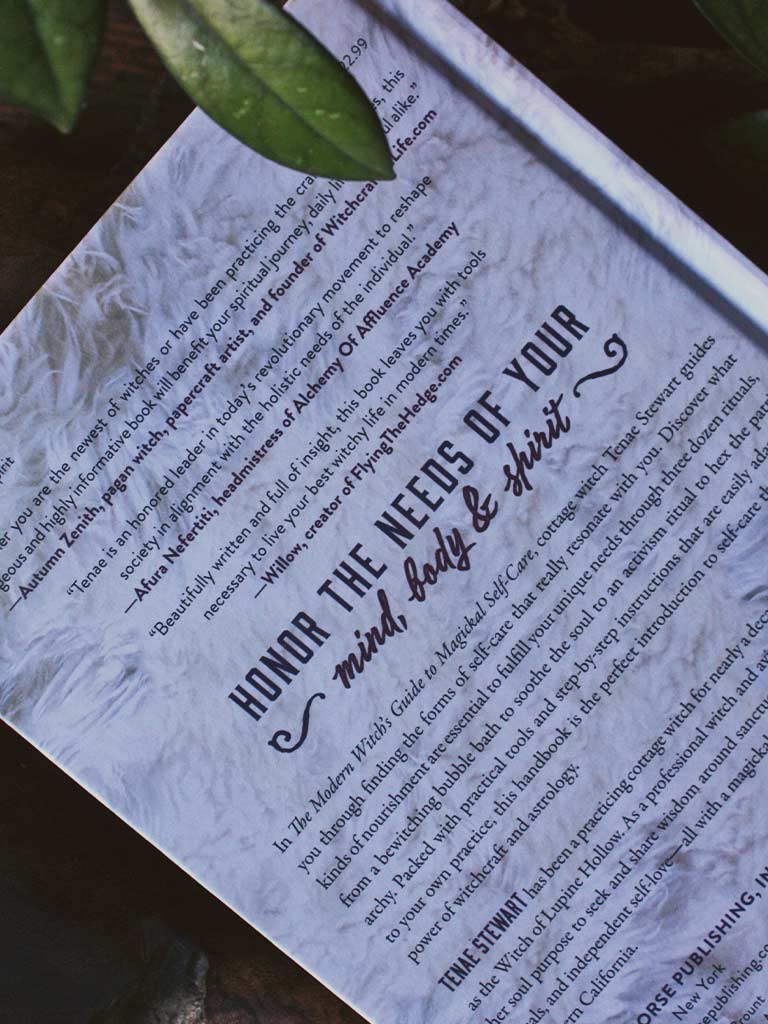 22.99
pirit
er you are the newest of witches or have been practicing the cra s, this
geous and highly informative book will benefit your spiritual journey, daily li ul alike.”
—Autumn Zenith, pagan witch, papercraft artist, and founder of Witchcraf Life.com
“Tenae is an honored leader in today’s revolutionary movement to reshape
society in alignment with the holistic needs of the individual.”
—Afura Nefertiti, headmistress of Alchemy Of Affluence Academy
“Beautifully written and full of insight, this book leaves you with tools
necessary to live your best witchy life in modern times.”
—Willow, creator of FlyingTheHedge.com
HONOR THE NEEDS OF YOUR
mind, body & spirit
In The Modern Witch’s Guide to Magickal Self-Care, cottage witch Tenae Stewart guides
you through finding the forms of self-care that really resonate with you. Discover what
kinds of nourishment are essential to fulfill your unique needs through three dozen rituals,
from a bewitching bubble bath to soothe the soul to an activism ritual to hex the patri
archy. Packed with practical tools and step-by-step instructions that are easily ada
to your own practice, this handbook is the perfect introduction to self-care
power of witchcraft and astrology.
TENAE STEWART has been a practicing cottage witch for nearly a deca
as the Witch of Lupine Hollow. As a professional witch and
her soul purpose to seek and share wisdom around sanctu
als, and independent self-love—all with a magicka
ern California.
ORSE PUBLISHING, IN
New York
epublishing.co
ount